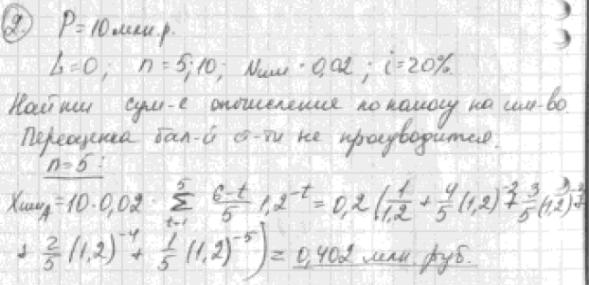 2. P=10 млн.р.
L=0; n=5;10; Nим=0,02; i=20%.
Найти сум-е отчисления по налогу на им-во.
Переоценка бал-й ст-ти не производится.
n=5:
XимA=10·0,02·∑_{t=1}^{5} (6-t)/5 1,2^{-t}=0,2(1/1,2 + 4/5(1,2)^{-2}+ 3/5(1,2)^{-3}+
+ 2/5(1,2)^{-4}+ 1/5(1,2)^{-5})= 0,402 млн. руб.